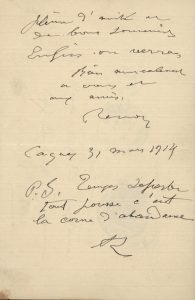 pleine d'amitié et
de bons souvenirs
Enfin on verra
Bien amicalement
à vous et
aux amis.
Renoir
Cagnes 31 mars 1914
P.S. Temps superbe
tout pousse c'est
la corne d'abondance
R